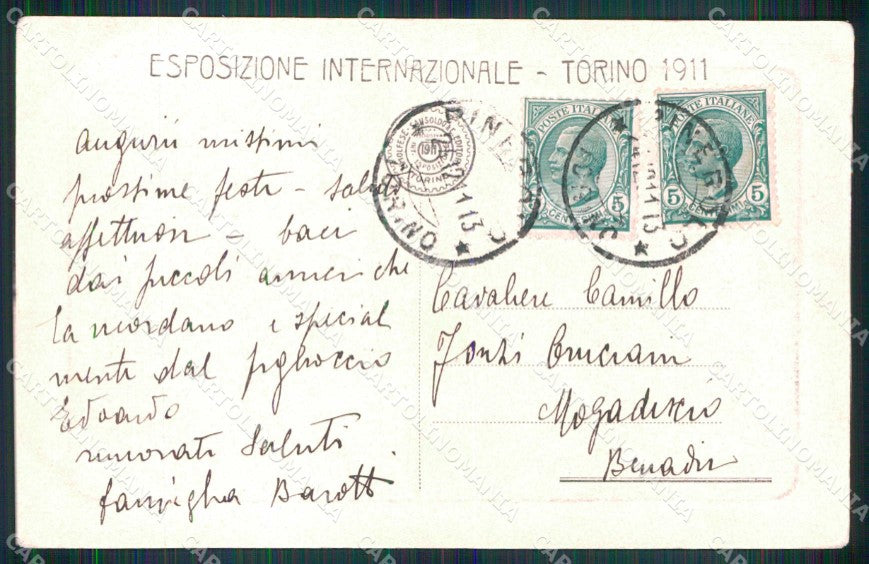 ESPOSIZIONE INTERNAZIONALE - TORINO 1911
POSTE ITALIANE
5 5
POSTE ITALIANE
5 5
TORINO
1911
TORINO
auguri
prossime feste - saluti
affettuosi - baci
dai piccoli amici che
La ricordano e special
mente dal figlioccio
Edoardo
rinnovati Saluti
famiglia Barott
Cavaliere Camillo
Mogadiscio
Benadir
CARTOLINOMANIA